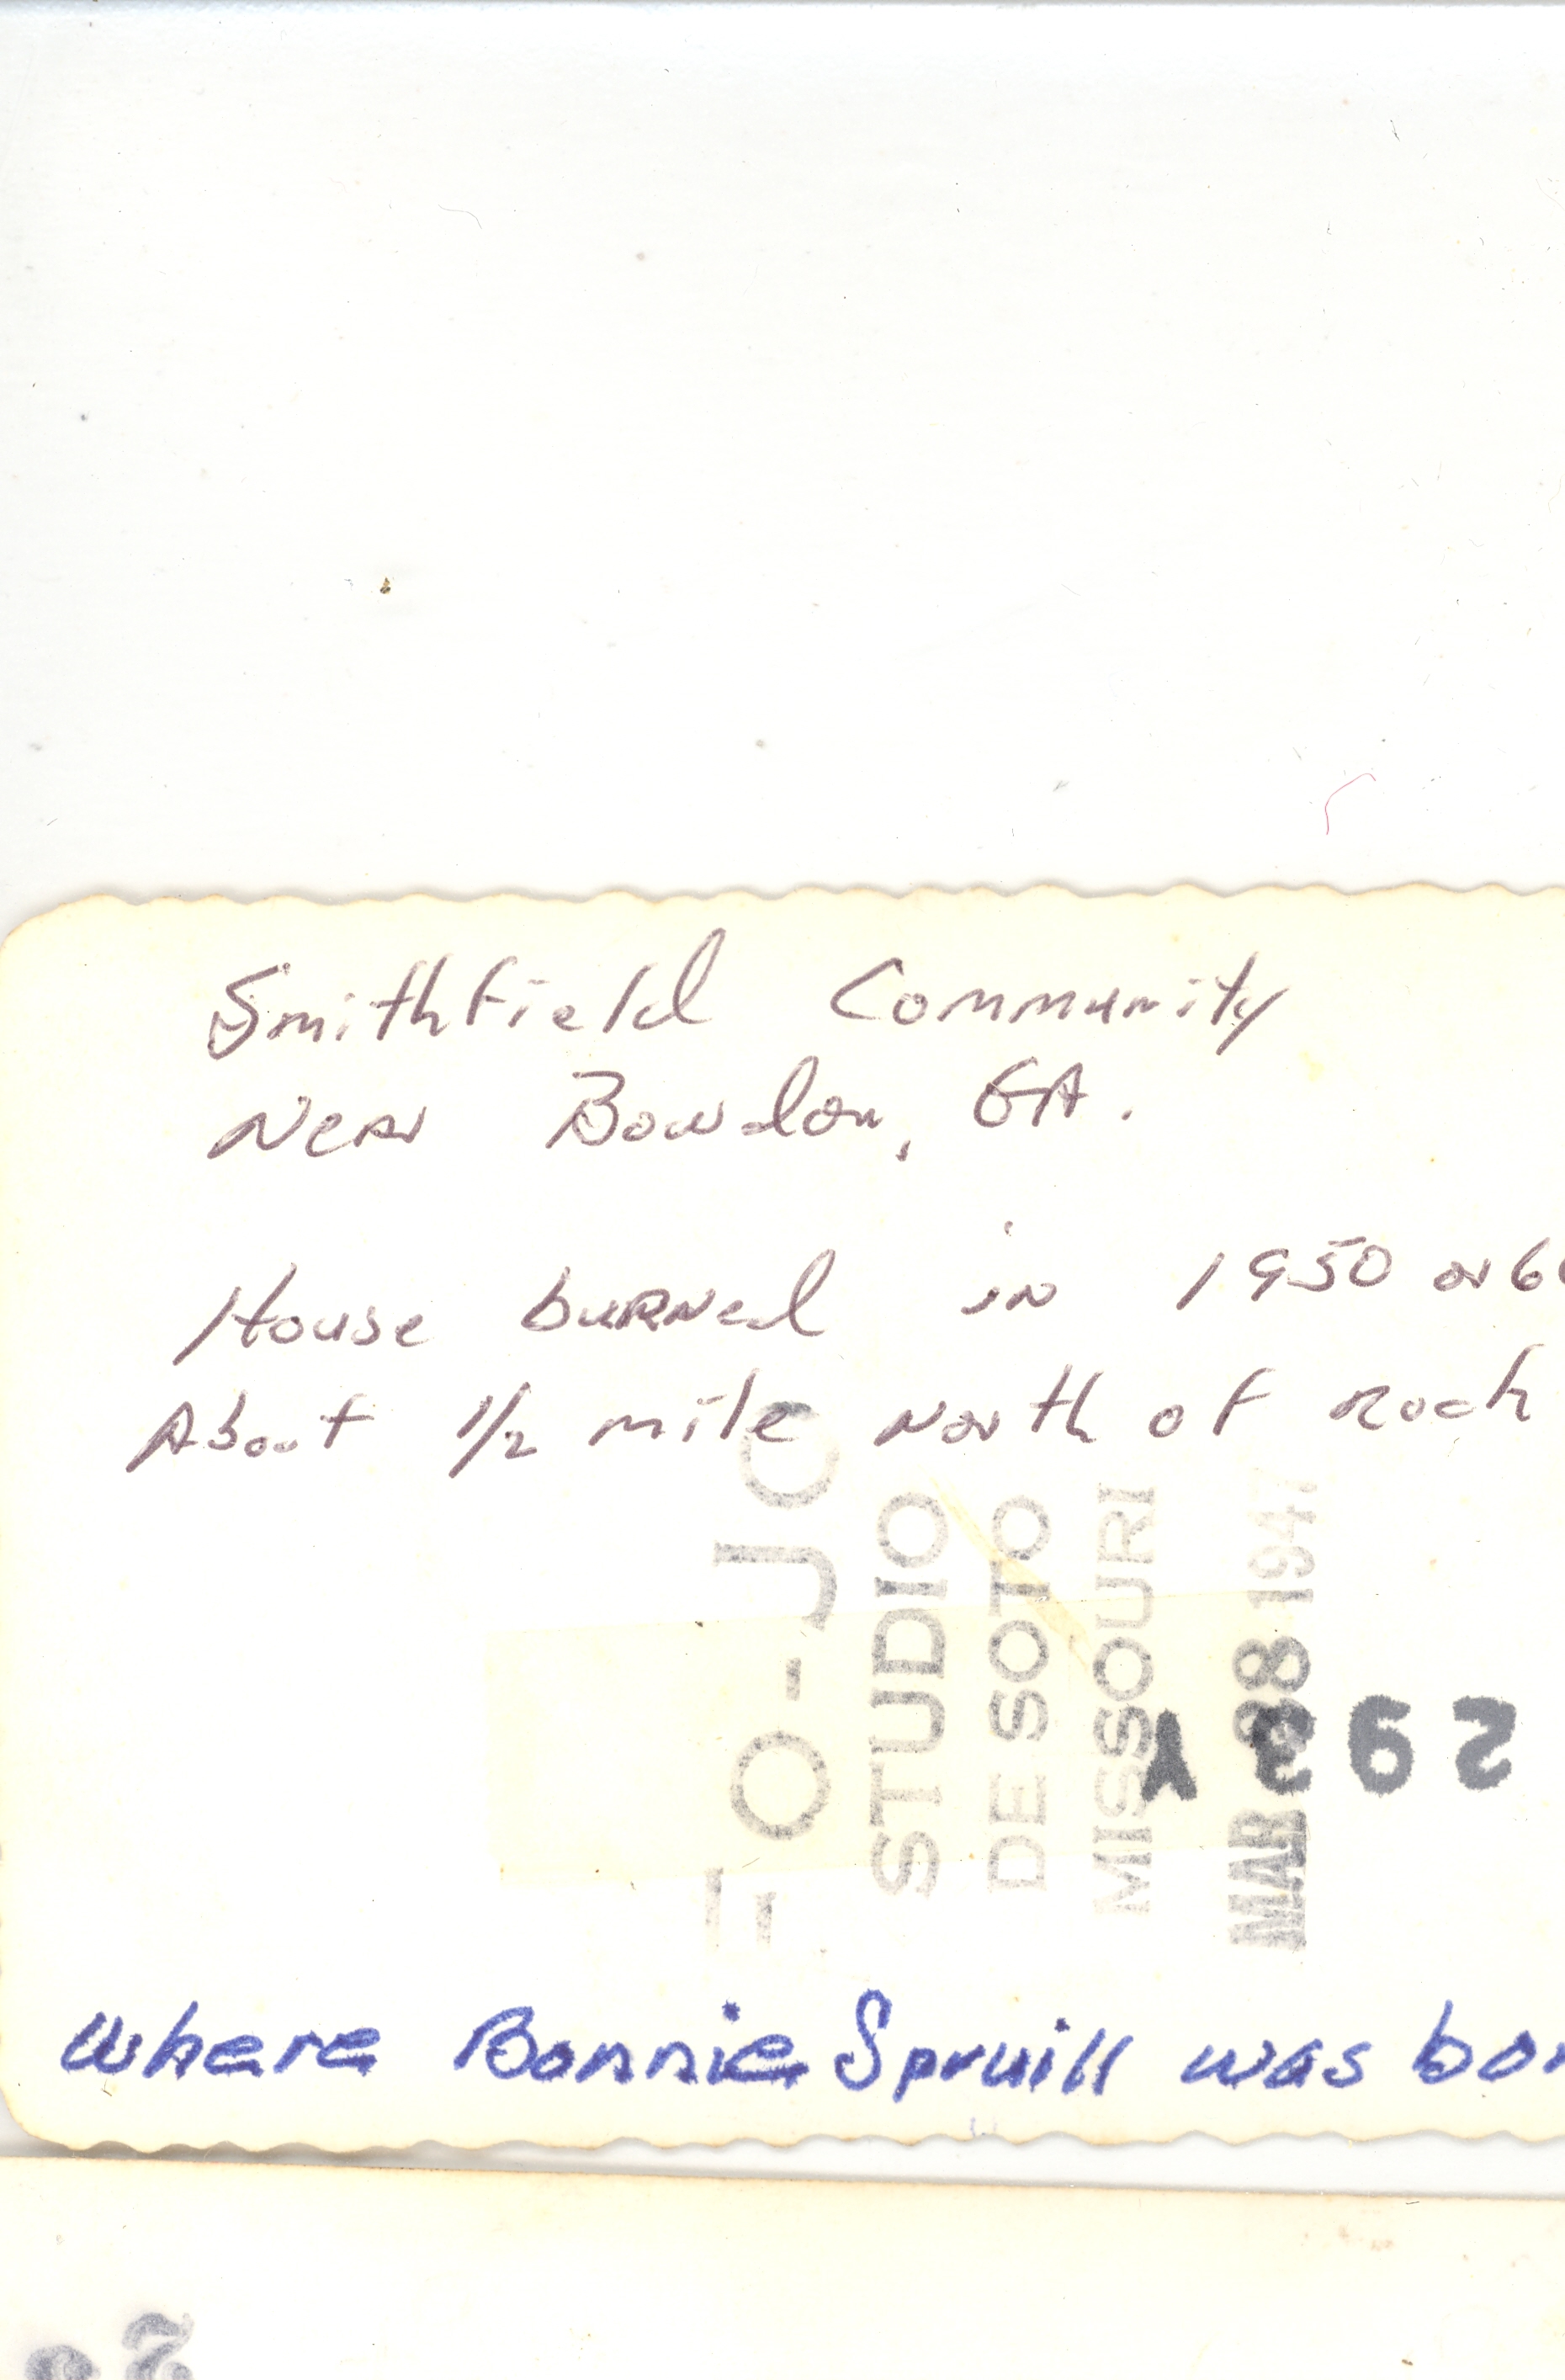 Smithfield Community
Near Bowdon, GA.
House burned in 1950 or 6
About 1/2 mile North of Rock
FO-JO
STUDIO
DE SOTO
MISSOURI
MAR 28 194
293
where Bonnie Spruill was bor